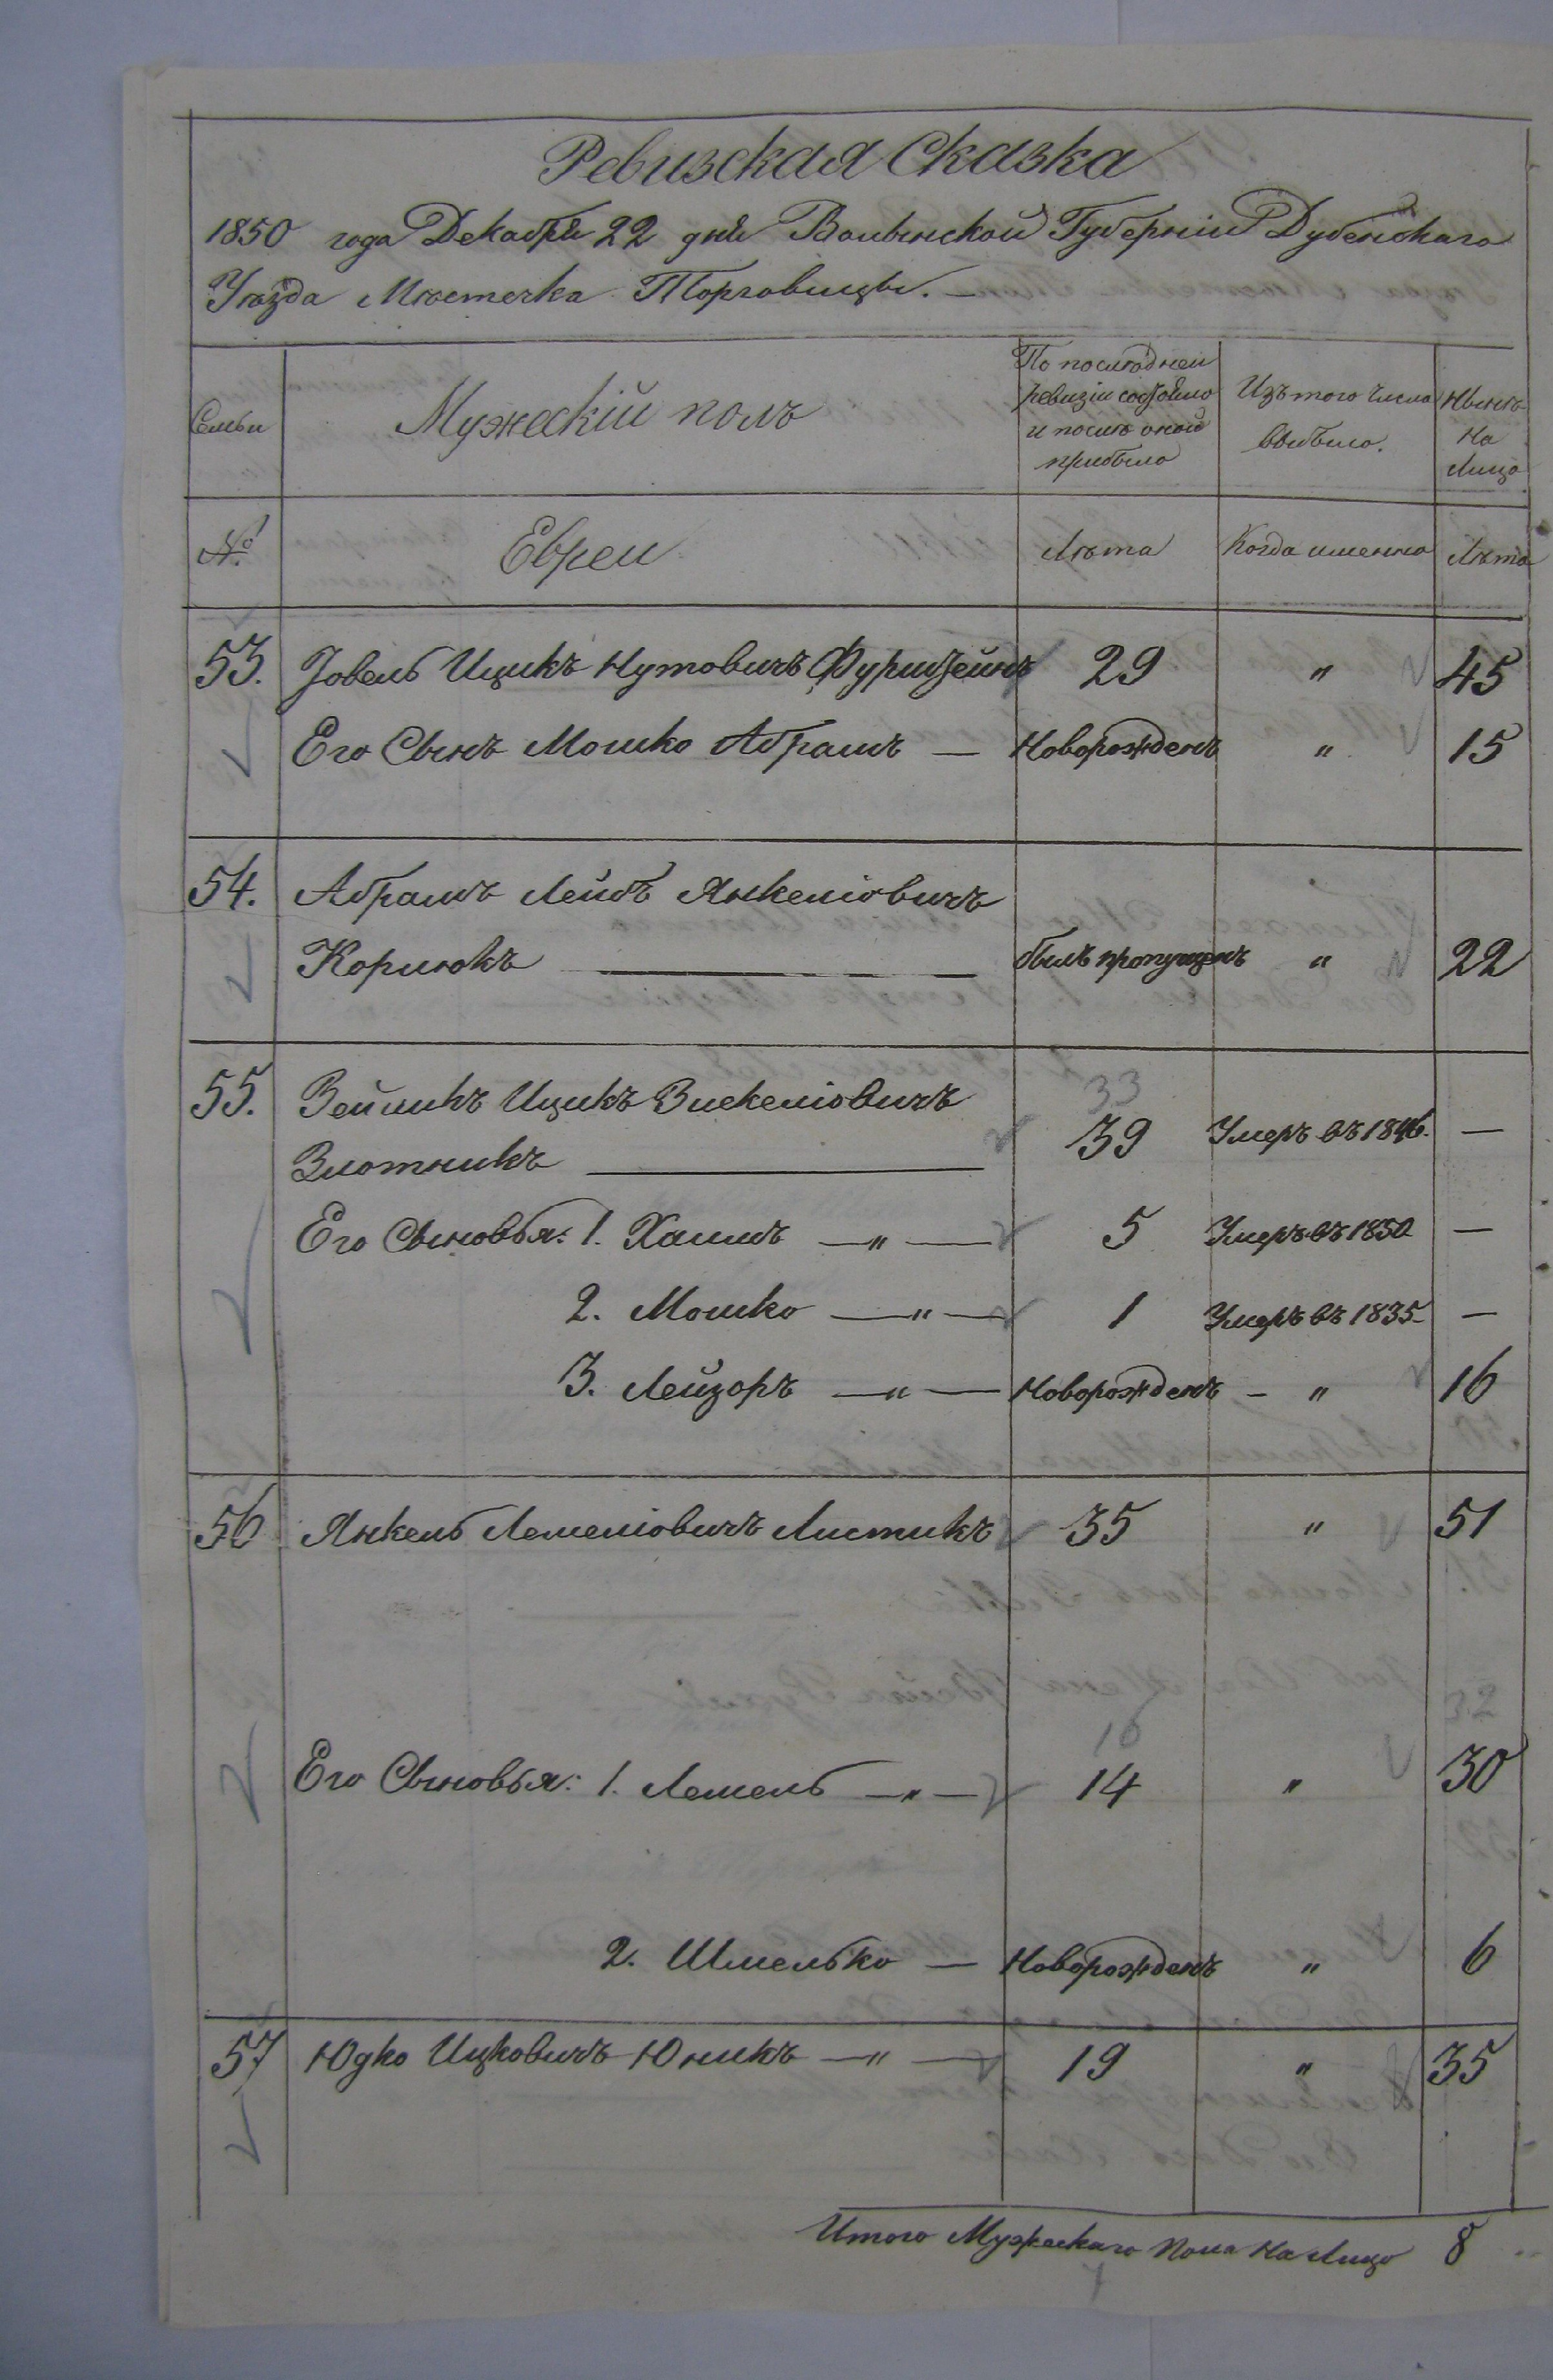 Ревизская Сказка
1850 года Декабря 22 дня Волынской Губерніи Дубенскаго
Уѣзда Мѣстечка Торговицы. —
Семьи
Мужескій полъ
По послѣдней
ревизіи состояло
и послѣ оной
прибыло
Изъ того числа
выбыло.
Нынѣ
На
Лицо
№
Евреи
Лѣта
Когда именно
Лѣта
53. Іовель Ицикъ Нутовичъ 29 " 45
Его Сынъ Мошко Абрамъ — Новорожденъ " 15
54. Абрамъ Лейбъ Янкеліовичъ
Корнюкъ — былъ пропущенъ " 22
55. Зейликъ Ицикъ 33
Злотникъ — 39 Умеръ въ 1846. —
Его Сыновья: 1. Хаимъ —"— 5 Умеръ въ 1850 —
2. Мошко —"— 1 Умеръ въ 1835 —
3. Лейзоръ —"— Новорожденъ — " 16
56 Янкель Лемеліовичъ Листикъ 35 " 51
16 32
Его Сыновья: 1. Лемель —"— 14 " 30
2. Шмелько — Новорожденъ " 6
57 Юдко Ицковичъ Юникъ —"— 19 " 35
Итого Мужескаго Пола На Лицо 8